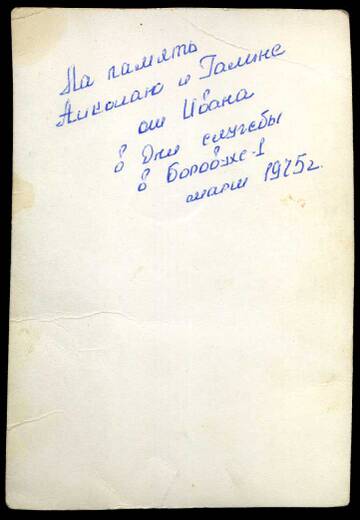 На память
Николаю и Галине
от Ивана
в дни службы
в Боровухе-1
март 1975г.